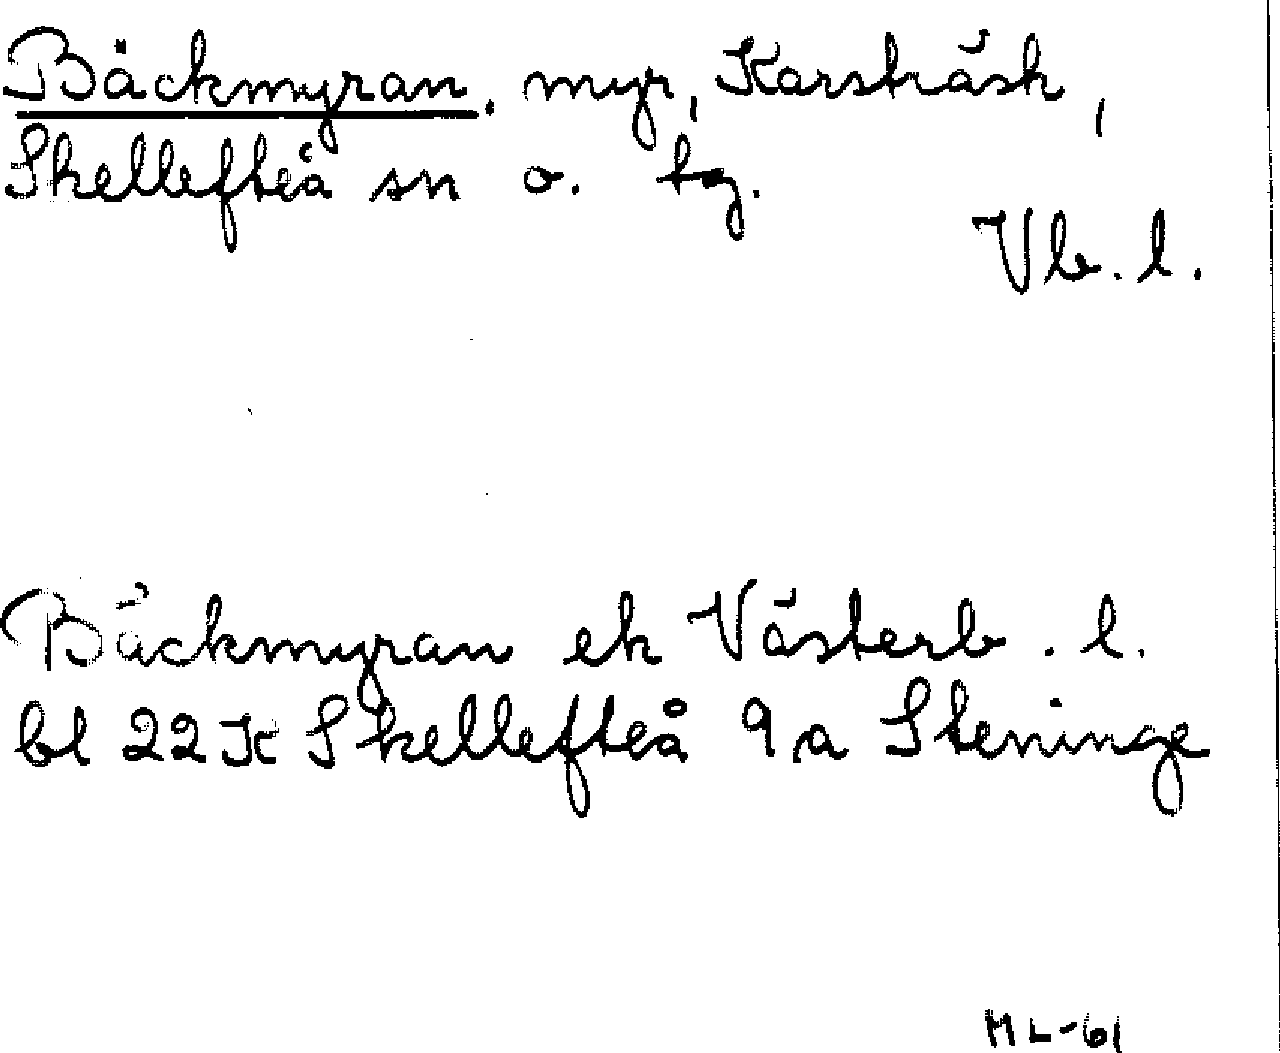 Bäckmyran. myr, Karsträsk,
Skellefteå sn o. tg.
Vb. l.
Bäckmyran ek Västerb. l.
bl 22K Skellefteå 9a Steninge
ML-61